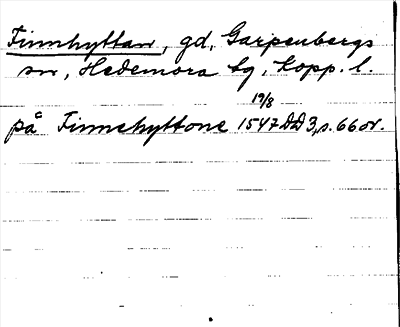 Finnhyttan, gd, Garpenbergs
sn, Hedemora tg, Kopp. l.
19/8
på Finnehyttone 1547 DD 3, s. 66 or.